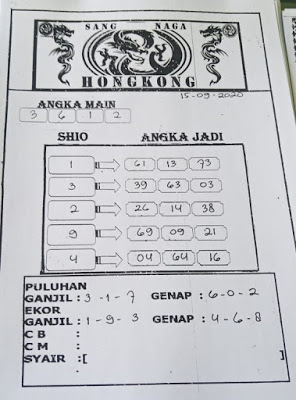 SANG NAGA
HONGKONG
15-09-2020
ANGKA MAIN
3 6 1 2
SHIO ANGKA JADI
1 61 13 73
3 39 63 03
2 26 14 38
9 69 09 21
4 04 64 16
PULUHAN
GANJIL : 3-1-7 GENAP : 6-0-2
EKOR
GANJIL : 1-9-3 GENAP : 4-6-8
C B :
C M :
SYAIR :[ ]